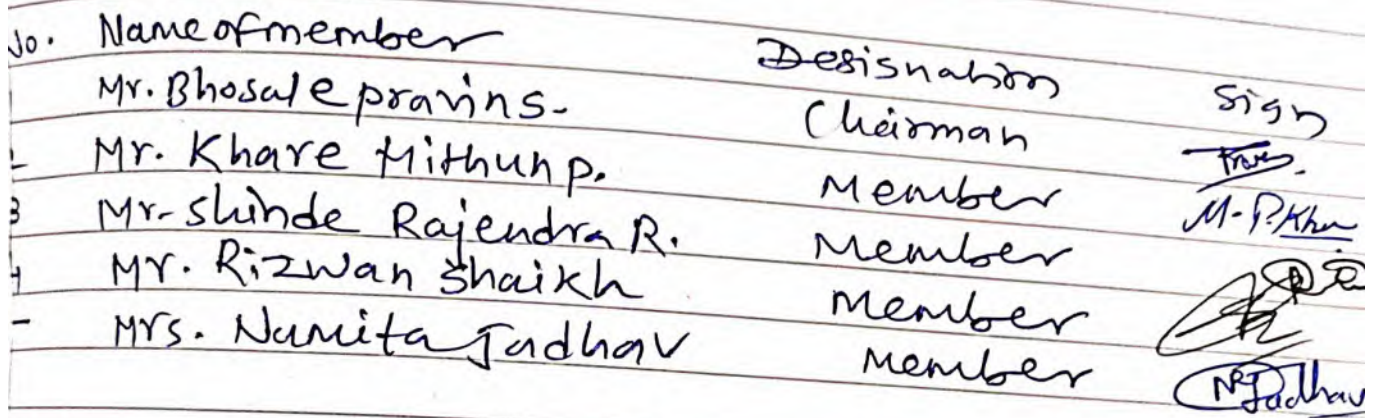 No. Name of member Desisnation Sign
Mr. Bhosale pravin s. Chairman
Mr. Khare Mithun p. Member M. P. Khare
3 Mr. Shinde Rajendra R. Member
4 Mr. Rizwan Shaikh Member
Mrs. Namita Jadhav Member NRJadhav